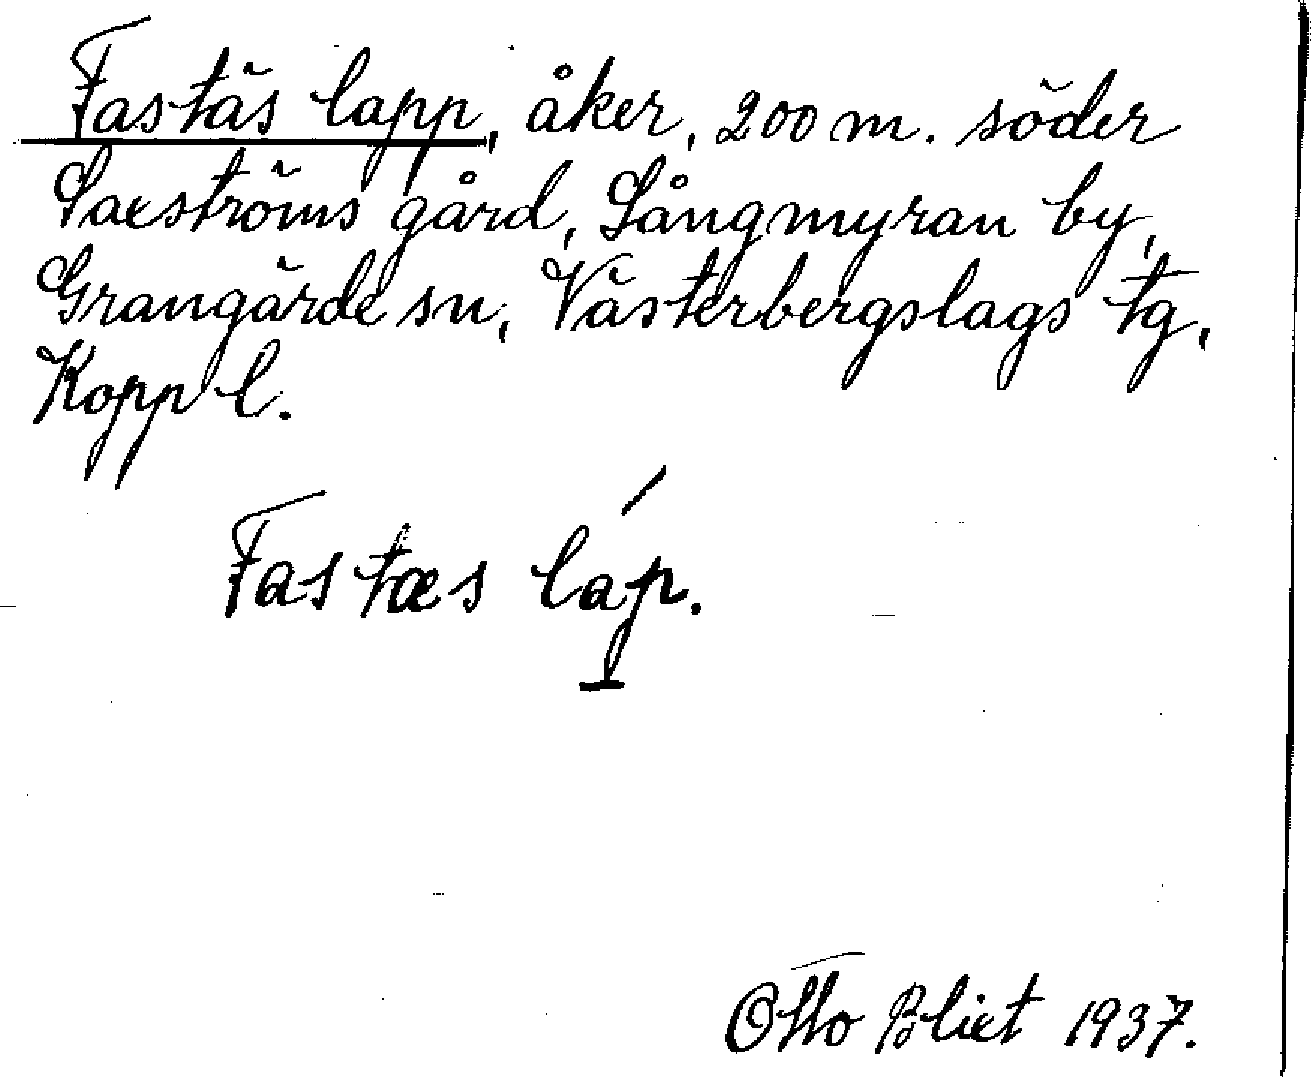 Fastäs lapp, åker, 200 m. söder
Saxströms gård, Långmyran by,
Grangärde sn, Västerbergslags tg,
Kopp l.
Fastæs láp.
Otto Blixt 1937.